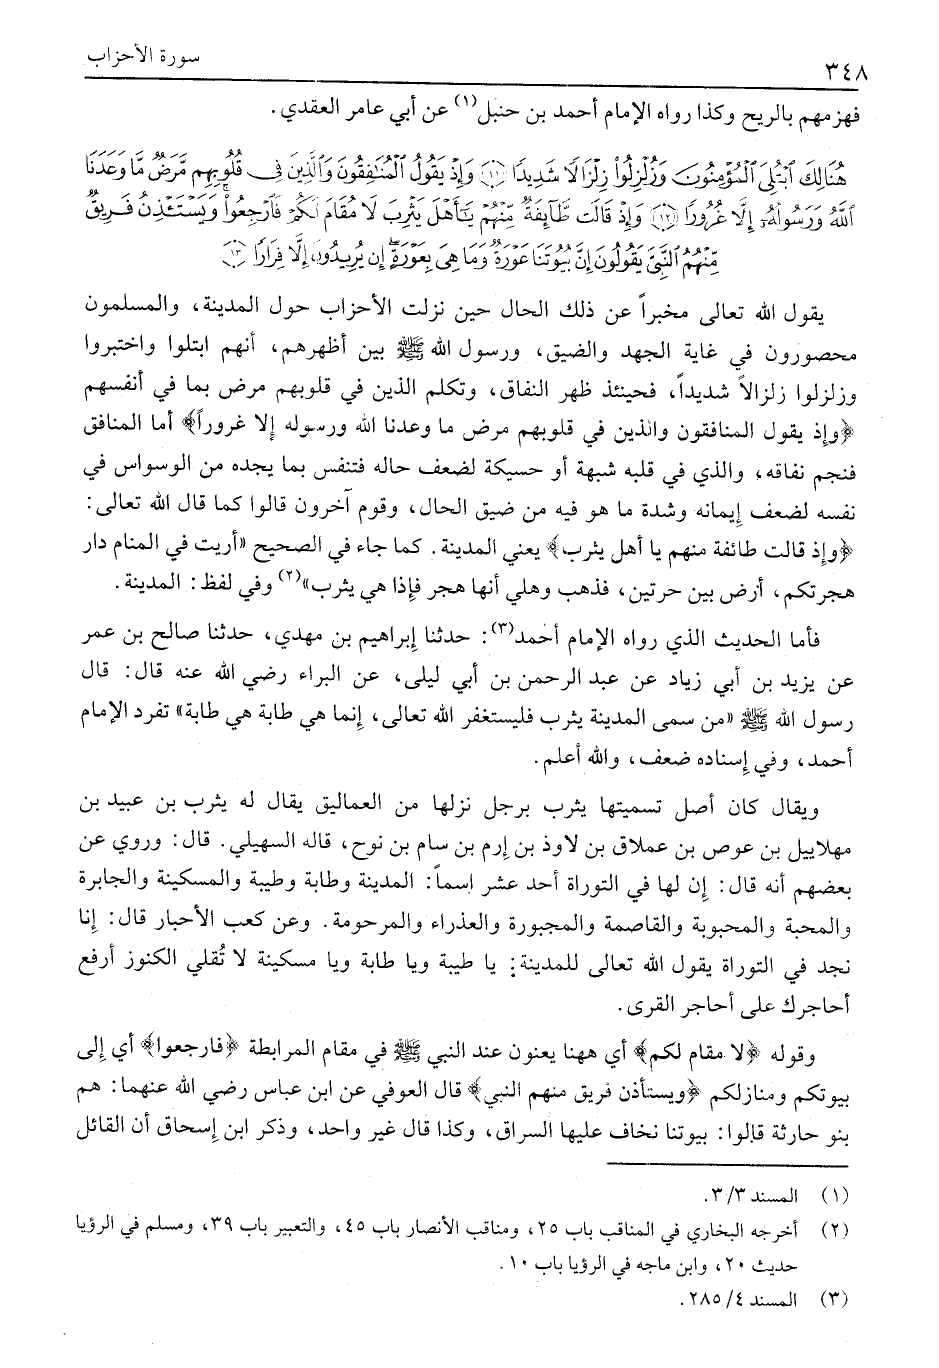 ٣٤٨
سورة الأحزاب
فهزمهم بالريح وكذا رواه الإمام أحمد بن حنبل(١) عن أبي عامر العقدي.
هُنَالِكَ ٱبْتُلِىَ ٱلْمُؤْمِنُونَ وَزُلْزِلُوا۟ زِلْزَالًا شَدِيدًا ﴿١١﴾ وَإِذْ يَقُولُ ٱلْمُنَٰفِقُونَ وَٱلَّذِينَ فِى قُلُوبِهِم مَّرَضٌ مَّا وَعَدَنَا
ٱللَّهُ وَرَسُولُهُۥٓ إِلَّا غُرُورًا ﴿١٢﴾ وَإِذْ قَالَت طَّآئِفَةٌ مِّنْهُمْ يَٰٓأَهْلَ يَثْرِبَ لَا مُقَامَ لَكُمْ فَٱرْجِعُوا۟ ۚ وَيَسْتَـْٔذِنُ فَرِيقٌ
مِّنْهُمُ ٱلنَّبِىَّ يَقُولُونَ إِنَّ بُيُوتَنَا عَوْرَةٌ وَمَا هِىَ بِعَوْرَةٍ ۖ إِن يُرِيدُونَ إِلَّا فِرَارًا ﴿١٣﴾
يقول الله تعالى مخبراً عن ذلك الحال حين نزلت الأحزاب حول المدينة، والمسلمون
محصورون في غاية الجهد والضيق، ورسول الله ﷺ بين أظهرهم، أنهم ابتلوا واختبروا
وزلزلوا زلزالاً شديداً، فحينئذ ظهر النفاق، وتكلم الذين في قلوبهم مرض بما في أنفسهم
﴿وإذ يقول المنافقون والذين في قلوبهم مرض ما وعدنا الله ورسوله إلا غروراً﴾ أما المنافق
فنجم نفاقه، والذي في قلبه شبهة أو حسيكة لضعف حاله فتنفس بما يجده من الوسواس في
نفسه لضعف إيمانه وشدة ما هو فيه من ضيق الحال، وقوم آخرون قالوا كما قال الله تعالى:
﴿وإذ قالت طائفة منهم يا أهل يثرب﴾ يعني المدينة. كما جاء في الصحيح «أريت في المنام دار
هجرتكم، أرض بين حرتين، فذهب وهلي أنها هجر فإذا هي يثرب»(٢) وفي لفظ: المدينة.
فأما الحديث الذي رواه الإمام أحمد(٣): حدثنا إبراهيم بن مهدي، حدثنا صالح بن عمر
عن يزيد بن أبي زياد عن عبد الرحمن بن أبي ليلى، عن البراء رضي الله عنه قال: قال
رسول الله ﷺ «من سمى المدينة يثرب فليستغفر الله تعالى، إنما هي طابة هي طابة» تفرد الإمام
أحمد، وفي إسناده ضعف، والله أعلم.
ويقال كان أصل تسميتها يثرب برجل نزلها من العماليق يقال له يثرب بن عبيد بن
مهلاييل بن عوص بن عملاق بن لاوذ بن إرم بن سام بن نوح، قاله السهيلي. قال: وروي عن
بعضهم أنه قال: إن لها في التوراة أحد عشر اسماً: المدينة وطابة وطيبة والمسكينة والجابرة
والمحبة والمحبوبة والقاصمة والمجبورة والعذراء والمرحومة. وعن كعب الأحبار قال: إنا
نجد في التوراة يقول الله تعالى للمدينة: يا طيبة ويا طابة ويا مسكينة لا تُقلي الكنوز أرفع
أحاجرك على أحاجر القرى.
وقوله ﴿لا مقام لكم﴾ أي ههنا يعنون عند النبي ﷺ في مقام المرابطة ﴿فارجعوا﴾ أي إلى
بيوتكم ومنازلكم ﴿ويستأذن فريق منهم النبي﴾ قال العوفي عن ابن عباس رضي الله عنهما: هم
بنو حارثة قالوا: بيوتنا نخاف عليها السراق، وكذا قال غير واحد، وذكر ابن إسحاق أن القائل
(١) المسند ٣/٣.
(٢) أخرجه البخاري في المناقب باب ٢٥، ومناقب الأنصار باب ٤٥، والتعبير باب ٣٩، ومسلم في الرؤيا
حديث ٢٠، وابن ماجه في الرؤيا باب ١٠.
(٣) المسند ٢٨٥/٤.